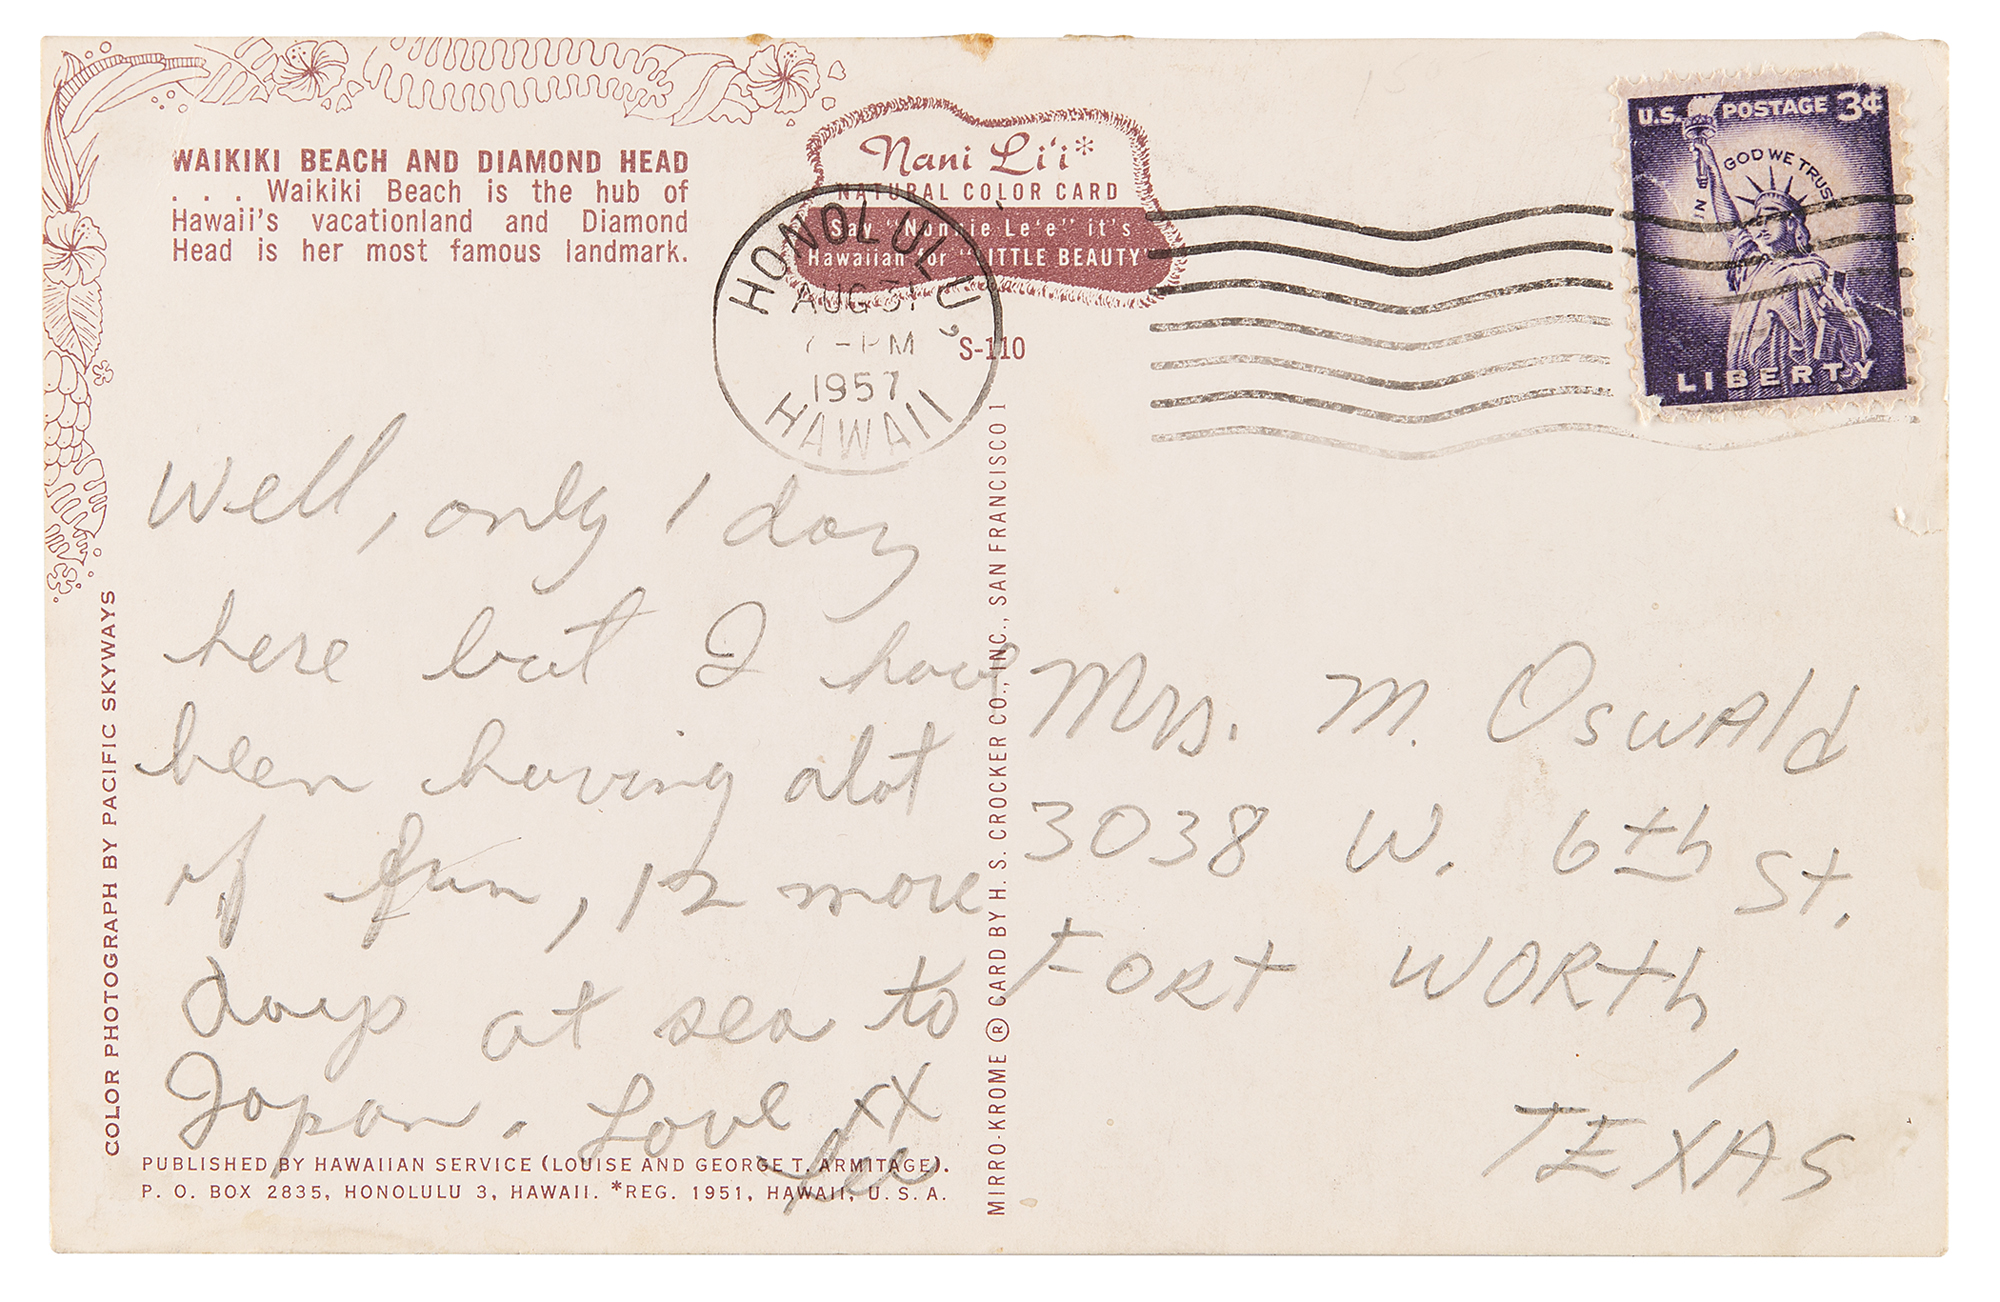 WAIKIKI BEACH AND DIAMOND HEAD
. . . Waikiki Beach is the hub of
Hawaii's vacationland and Diamond
Head is her most famous landmark.
Nani Li'i*
NATURAL COLOR CARD
Say "Nonnie Le'e" it's
Hawaiian for "LITTLE BEAUTY"
S-110
HONOLULU,
AUG 31
7 - PM
1957
HAWAII
U.S. POSTAGE 3¢
IN GOD WE TRUST
LIBERTY
Well, only 1 day
here but I have
been having alot
of fun, 12 more
days at sea to
Japan. Love xx
Lee
Mrs. M. Oswald
3038 W. 6th St.
FORT WORTH,
TEXAS
COLOR PHOTOGRAPH BY PACIFIC SKYWAYS
MIRRO-KROME ® CARD BY H. S. CROCKER CO., INC., SAN FRANCISCO 1
PUBLISHED BY HAWAIIAN SERVICE (LOUISE AND GEORGE T. ARMITAGE).
P. O. BOX 2835, HONOLULU 3, HAWAII. *REG. 1951, HAWAII, U. S. A.